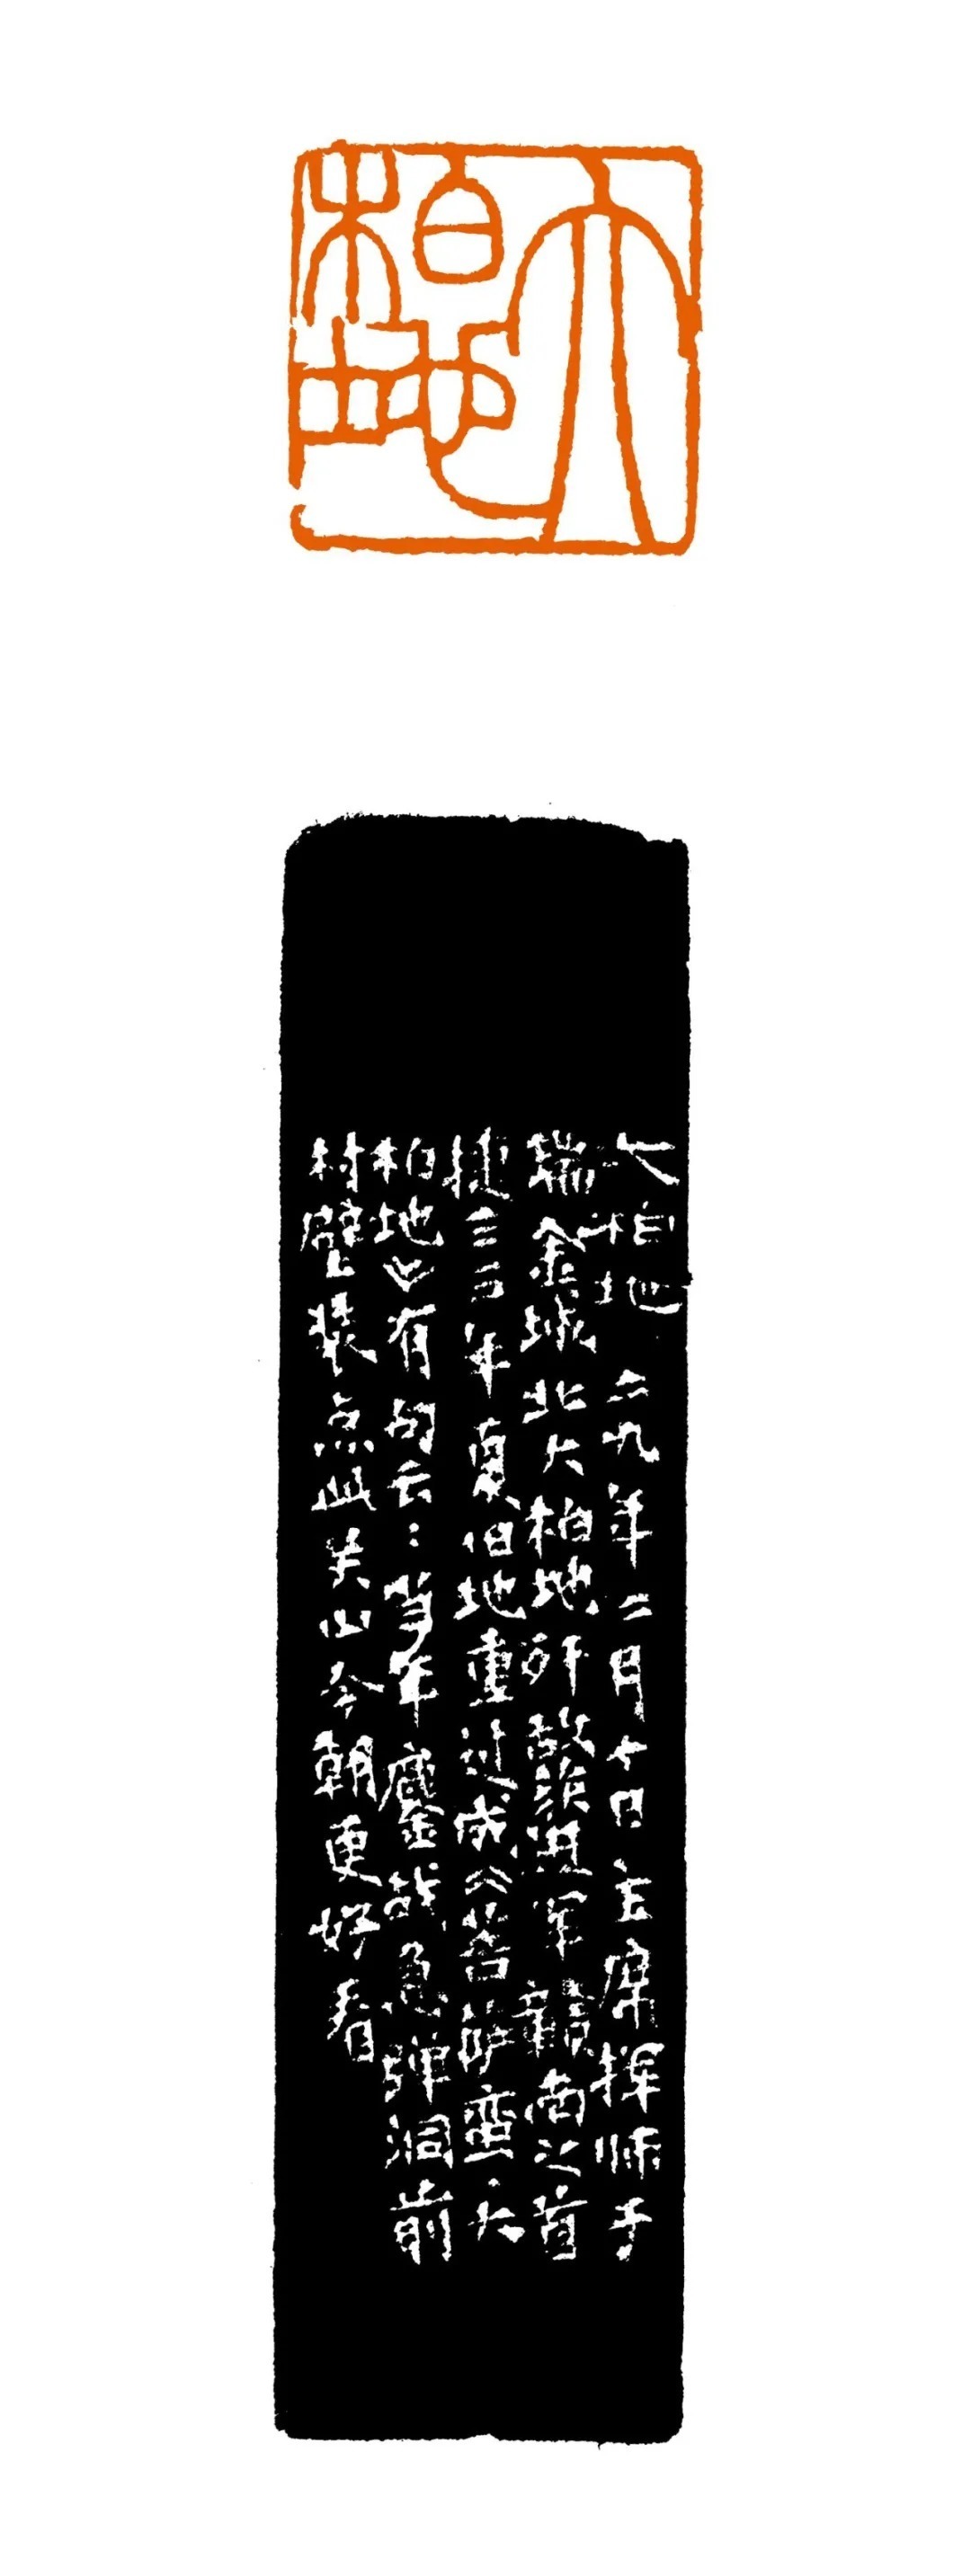 大柏地
大柏地 二九年二月十日主席挥师于
瑞金城北大柏地歼敌获进军赣南之首
捷三三年夏伯地重过成《菩萨蛮·大
柏地》有句云：当年鏖战急弹洞前
村壁装点此关山今朝更好看